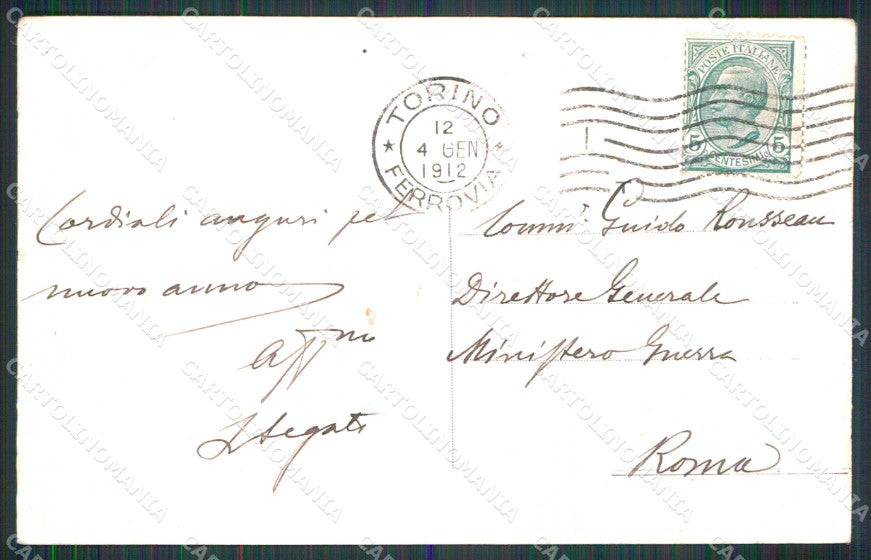 TORINO
12
4 GEN
1912
FERROVIA
POSTE ITALIANE
5 CENTESIMI 5
Cordiali auguri pel
nuovo anno
Aff.mo
Comm. Guido Rousseau
Direttore Generale
Ministero Guerra
Roma
CARTOLINOMANIA